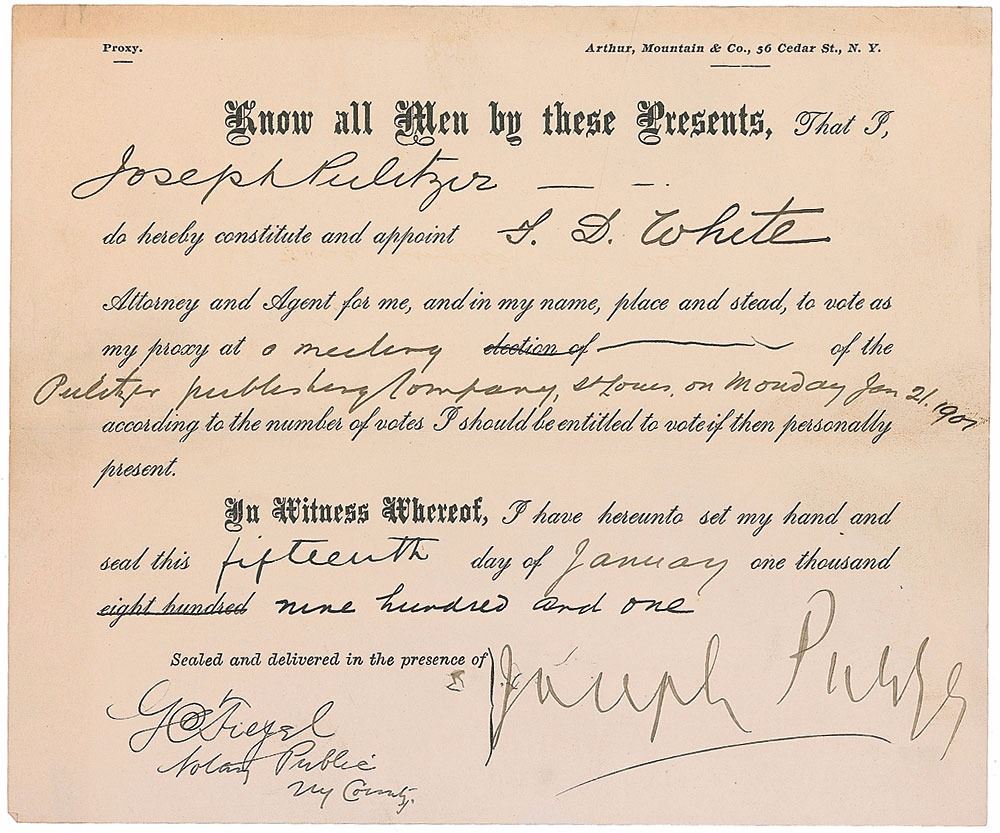 Proxy.
Arthur, Mountain & Co., 56 Cedar St., N. Y.
Know all Men by these Presents, That I,
Joseph Pulitzer — —
do hereby constitute and appoint F. D. White
Attorney and Agent for me, and in my name, place and stead, to vote as
my proxy at a meeting election of of the
Pulitzer publishing Company, St Louis, on Monday Jan 21. 1901
according to the number of votes I should be entitled to vote if then personally
present.
In Witness Whereof, I have hereunto set my hand and
seal this fifteenth day of January one thousand
eight hundred nine hundred and one
Sealed and delivered in the presence of
Joseph Pulitzer
Notary Public
NY County.